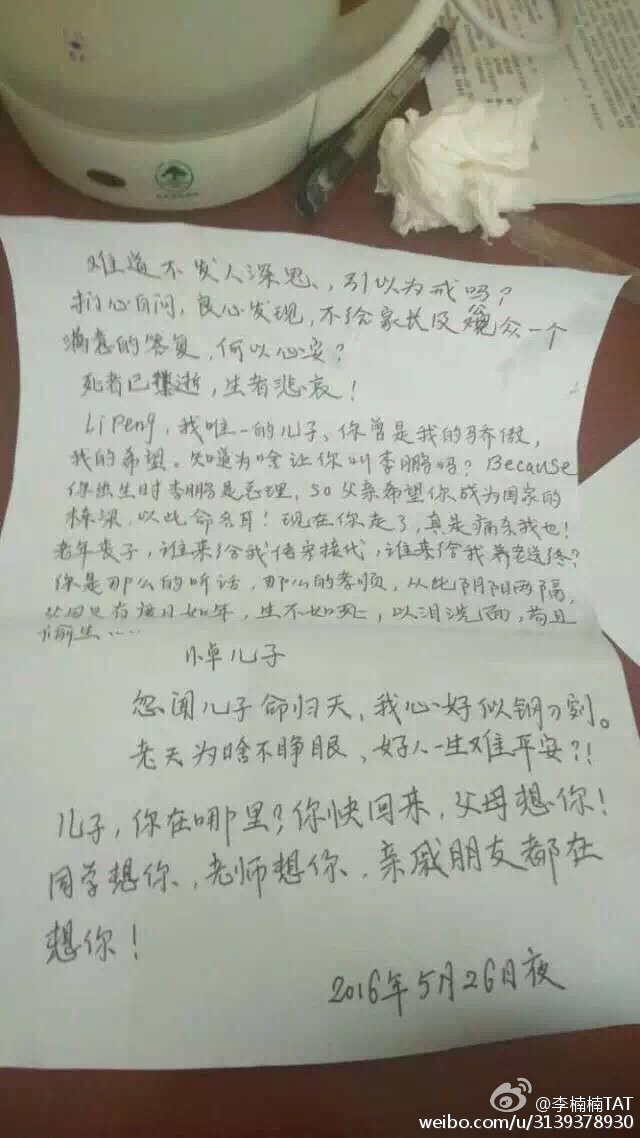 难道不发人深思、引以为戒吗?
扪心自问,良心发现,不给家长及众一个
满意的答复,何以心安?
死者已逝,生者悲哀!
Li Peng,我唯一的儿子、你曾是我的骄傲,
我的希望。知道为啥让你叫李鹏吗?Because
你出生时李鹏是总理,so父亲希望你成为国家的
栋梁,以此命名耳!现在你走了,真是痛杀我也!
老年丧子,谁来给我传宗接代,谁来给我养老送终?
你是那么的听话,那么的孝顺,从此阴阳两隔,
父母只有度日如年,生不如死,以泪洗面,苟且
偷生……
悼儿子
忽闻儿子命归天,我心好似钢刀刻。
老天为啥不睁眼,好人一生难平安?!
儿子,你在哪里?你快回来,父母想你!
同学想你、老师想你、亲戚朋友都在
想你!
2016年5月26日夜
@李楠楠TAT
weibo.com/u/3139378930